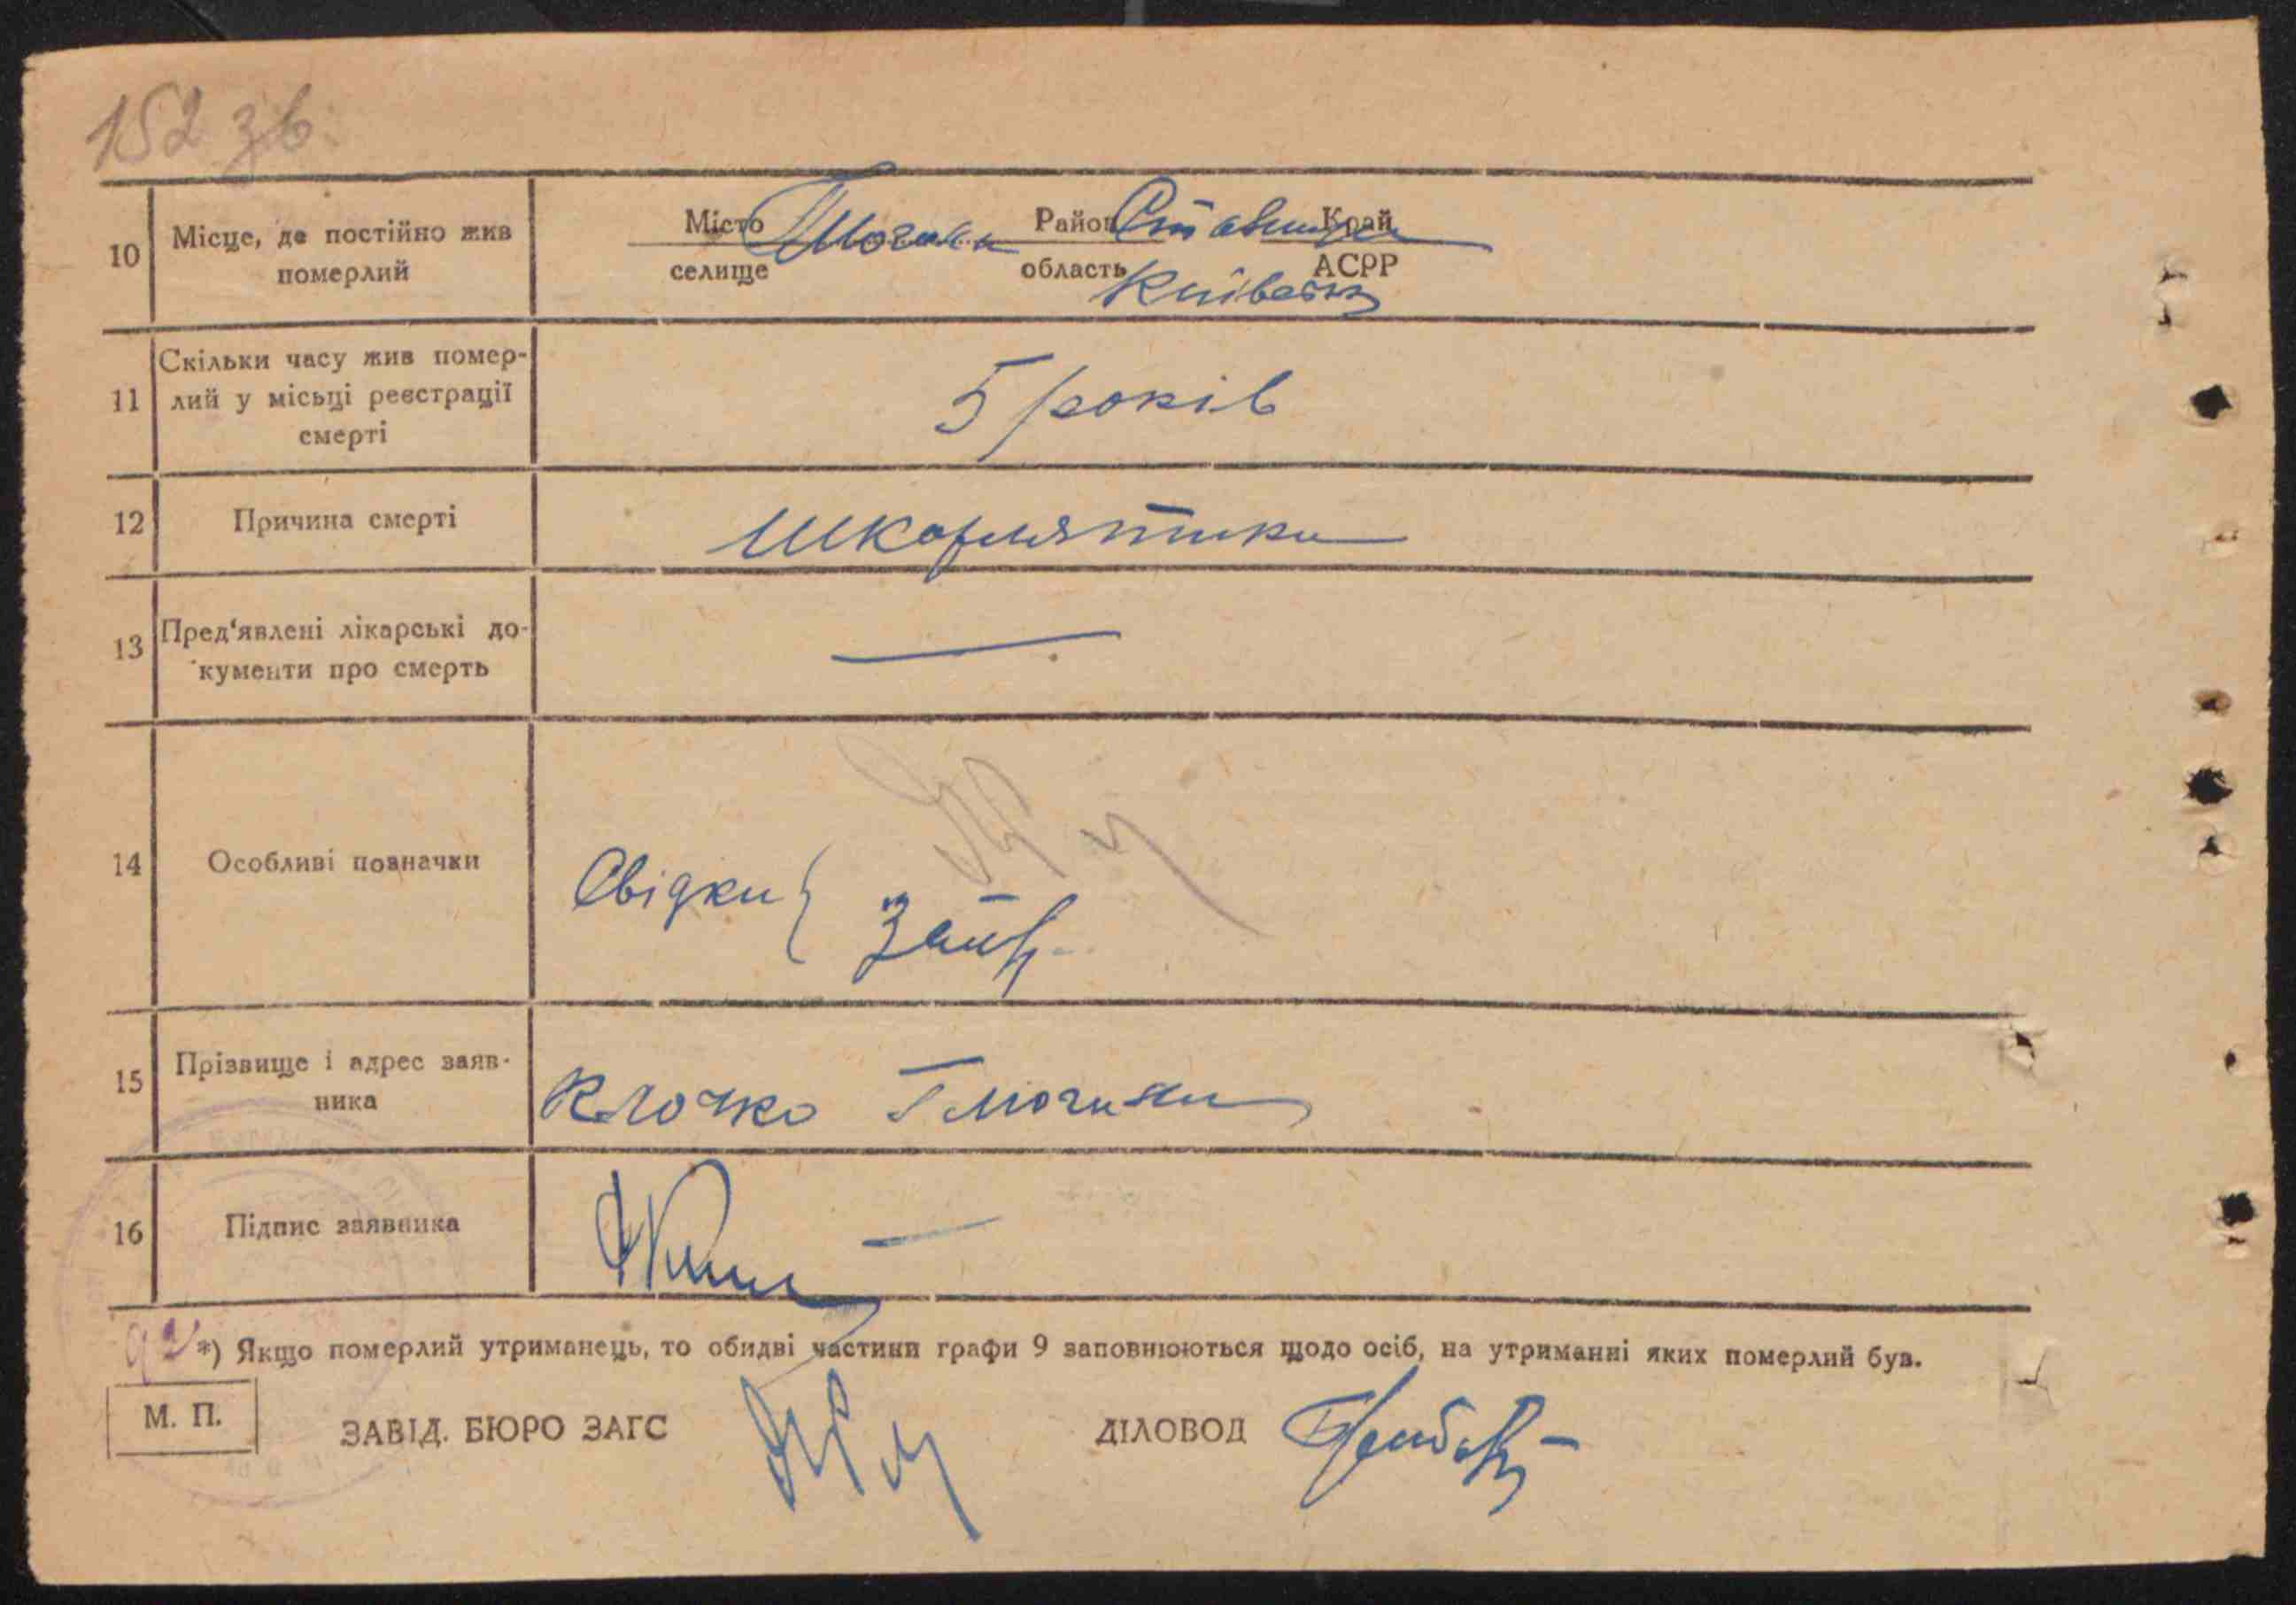 152 зв.
10 Місце, де постійно жив померлий
Місто Район Край
селище область АСРР
Київська
11 Скільки часу жив помер-
лий у місьці реєстрації
смерті
5 років
12 Причина смерті
Шкарлятина
13 Пред'явлені лікарські до-
кументи про смерть
—
14 Особливі позначки
Свідки {
15 Прізвище і адрес заяв-
ника
Клочко
16 Підпис заявника
*) Якщо померлий утриманець, то обидві частини графи 9 заповнюються щодо осіб, на утриманні яких померлий був.
М. П. ЗАВІД. БЮРО ЗАГС ДІЛОВОД